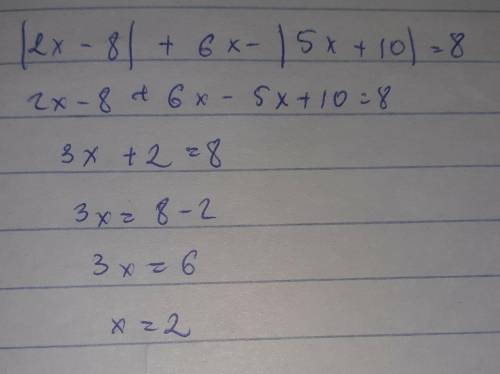 |2x - 8| + 6x - |5x + 10| = 8
2x - 8 + 6x - 5x + 10 = 8
3x + 2 = 8
3x = 8 - 2
3x = 6
x = 2